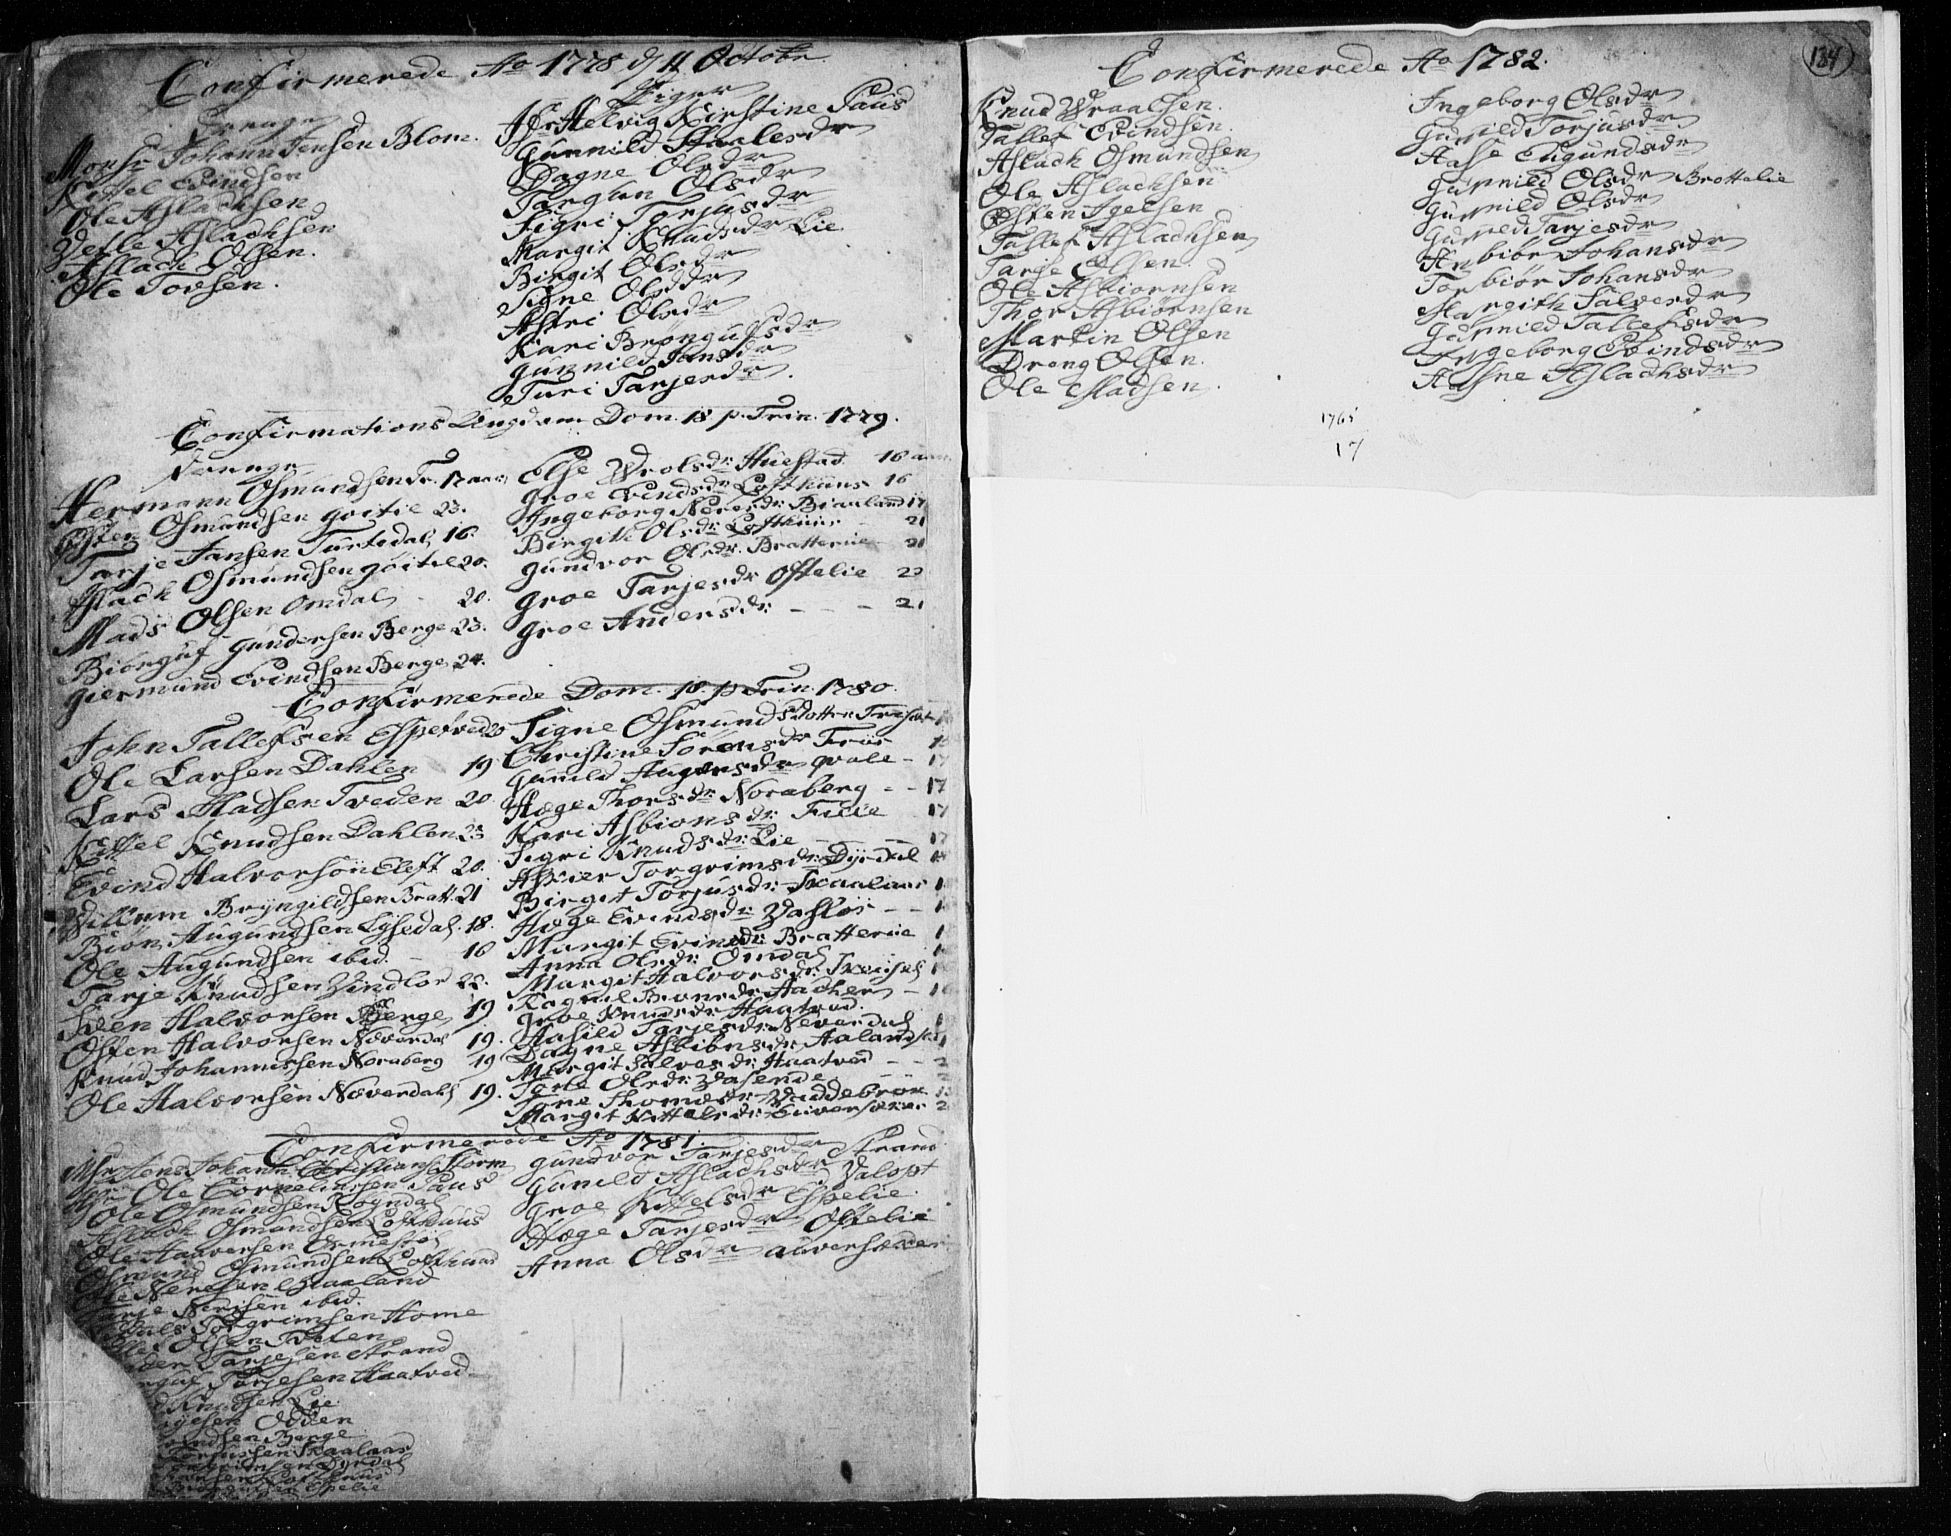 Confirmerede Ao 1778 d/ 11 Octobr
Drenge
Monsr Johann Jensen Blom.
Kittel Evindsen
Ole Aslachsen
Vetle Aslachsen
Aslach Olsen.
Ole Tovsen.
Piger
Jfr Helvig Kirstine Paus
Gunnild Staalesdr
Dagne Olsdr
Targun Olsdr
Sigri Torjusdr
Margit Knudsdr Lie
Birgit Olsdr
Signe Olsdr
Astri Olsdr
Kari Brøngulfsdr
Gunnild Jonsdr
Turi Tarjesdr
Confirmations Ungdom Dom. 18 p. Trin. 1779.
Drenge
Hermann Osmundsen Tr. 17 aar
Østen Osmundsen Goitil 23.
Tarje Jansen Turtedal 16.
Aslach Osmundsen Goitil 20.
Mads Olsen Omdal - 20.
Biørguf Gundersen Berge 23.
Giermund Evindsen Berge 24.
Else Wrolsdr Huestad 16 aar
Groe Evindsdr Lofthuus 16
Ingeborg Neresdr Biaaland 17
Birgitte Olsdr Lofthuus - 21
Gundvor Olsdr. Bratterue - 21
Groe Tarjesdr Oftelie 20
Groe Andersdr - - - 21
Confirmerede Dom. 18. p Trin. 1780.
John Tallefsen Espetved 20
Ole Larsen Dahlen 19
Lars Madsen Tveden 20
Kittel Knudsen Dahlen 23
Evind Halvorsøn Eleft 20.
Willum Bryngildsen Bratt. 21
Biøn Augundsen Lysedal. 18.
Ole Augundsen ibid. - 16
Tarje Knudsen Vindlor 22.
Sven Halvorsen Berge 19
Østen Halvorsen Næverdal 19.
Knud Johannissen Noraberg 19
Ole Halvorsen Næverdal 19.
Signe Osmunds Dotter Trisæt
Christine Sørensdr Troe
Gunild Augonsdr Qvale - 17
Hæge Thorsdr Noraberg - - 17
Kari Asbionsdr. Filie 17
Sigri Knudsdr. Lie - - 17
Asvier Torgrimsdr. Dyrdal
Birgit Torjusdr. Skaalaas
Hæge Evindsdr Vasløs - -
Margit Evindsdr. Bratterue
Anna Olsdr. Omdal
Margit Halvorsdr. Treisel
Ragnil Bronsdr Haches - 16
Groe Knudsdr Haatved.
Aasild Tarjesdr Næverdal
Dagne Asbiønsdr. Aaland
Margit Salvesdr. Haatved - -
Tone Olsdr. Vasende
Tone Thomesdr. Buddebroe
Margit Kittelsdr. Euversæter
Confirmerede Ao 1781.
Mr Jens Johann Christians. Storm
Jr Ole Corneliussen Paus
Ole Osmundsen Rogndal
Aslach Osmundsen Lofthuus
Ole Haavorsen Ormestøl
Osmund Osmundsen Lofthuus
Ole Neresen Biaaland
Tarje Nerisen ibid.
Torgrimsen Home
Olsen Tveten
Tarjesen Strand
Torjesen Haatved
Knudsen Lie
Odden
Berge
Torjussen Skaalaas
Torgrimsen Dyrdal
Lofthuus
Espelie
Gundvor Tarjesdr Strand
Gunild Aslachsdr Valopt
Groe Kittelsdr Espelie.
Hæge Tarjesdr Oftelie
Anna Olsdr Auversæter
134
Confirmerede Ao 1782.
Knud Wraalsen.
Tallef Evindsen.
Aslach Osmundsen
Ole Aslachsen
Østen Igelsen
Tallef Aslachsen
Tarje Olsen.
Ole Asbiørnsen
Thor Asbiørnsen
Martin Olsen
Dreng Olsen.
Ole Madsen.
Ingeborg Olsdr
Gunnild Torjusdr
Aasse Engundsdr
Gunnild Olsdr Brottelie
Gunnild Olsdr
Gunild Tarjesdr
Anbiør Johansdr
Torbiør Johansdr
Margith Salvesdr
Gunnild Tallefsdr
Ingeborg Evindsdr
Aasne Aslachsdr
1765
17